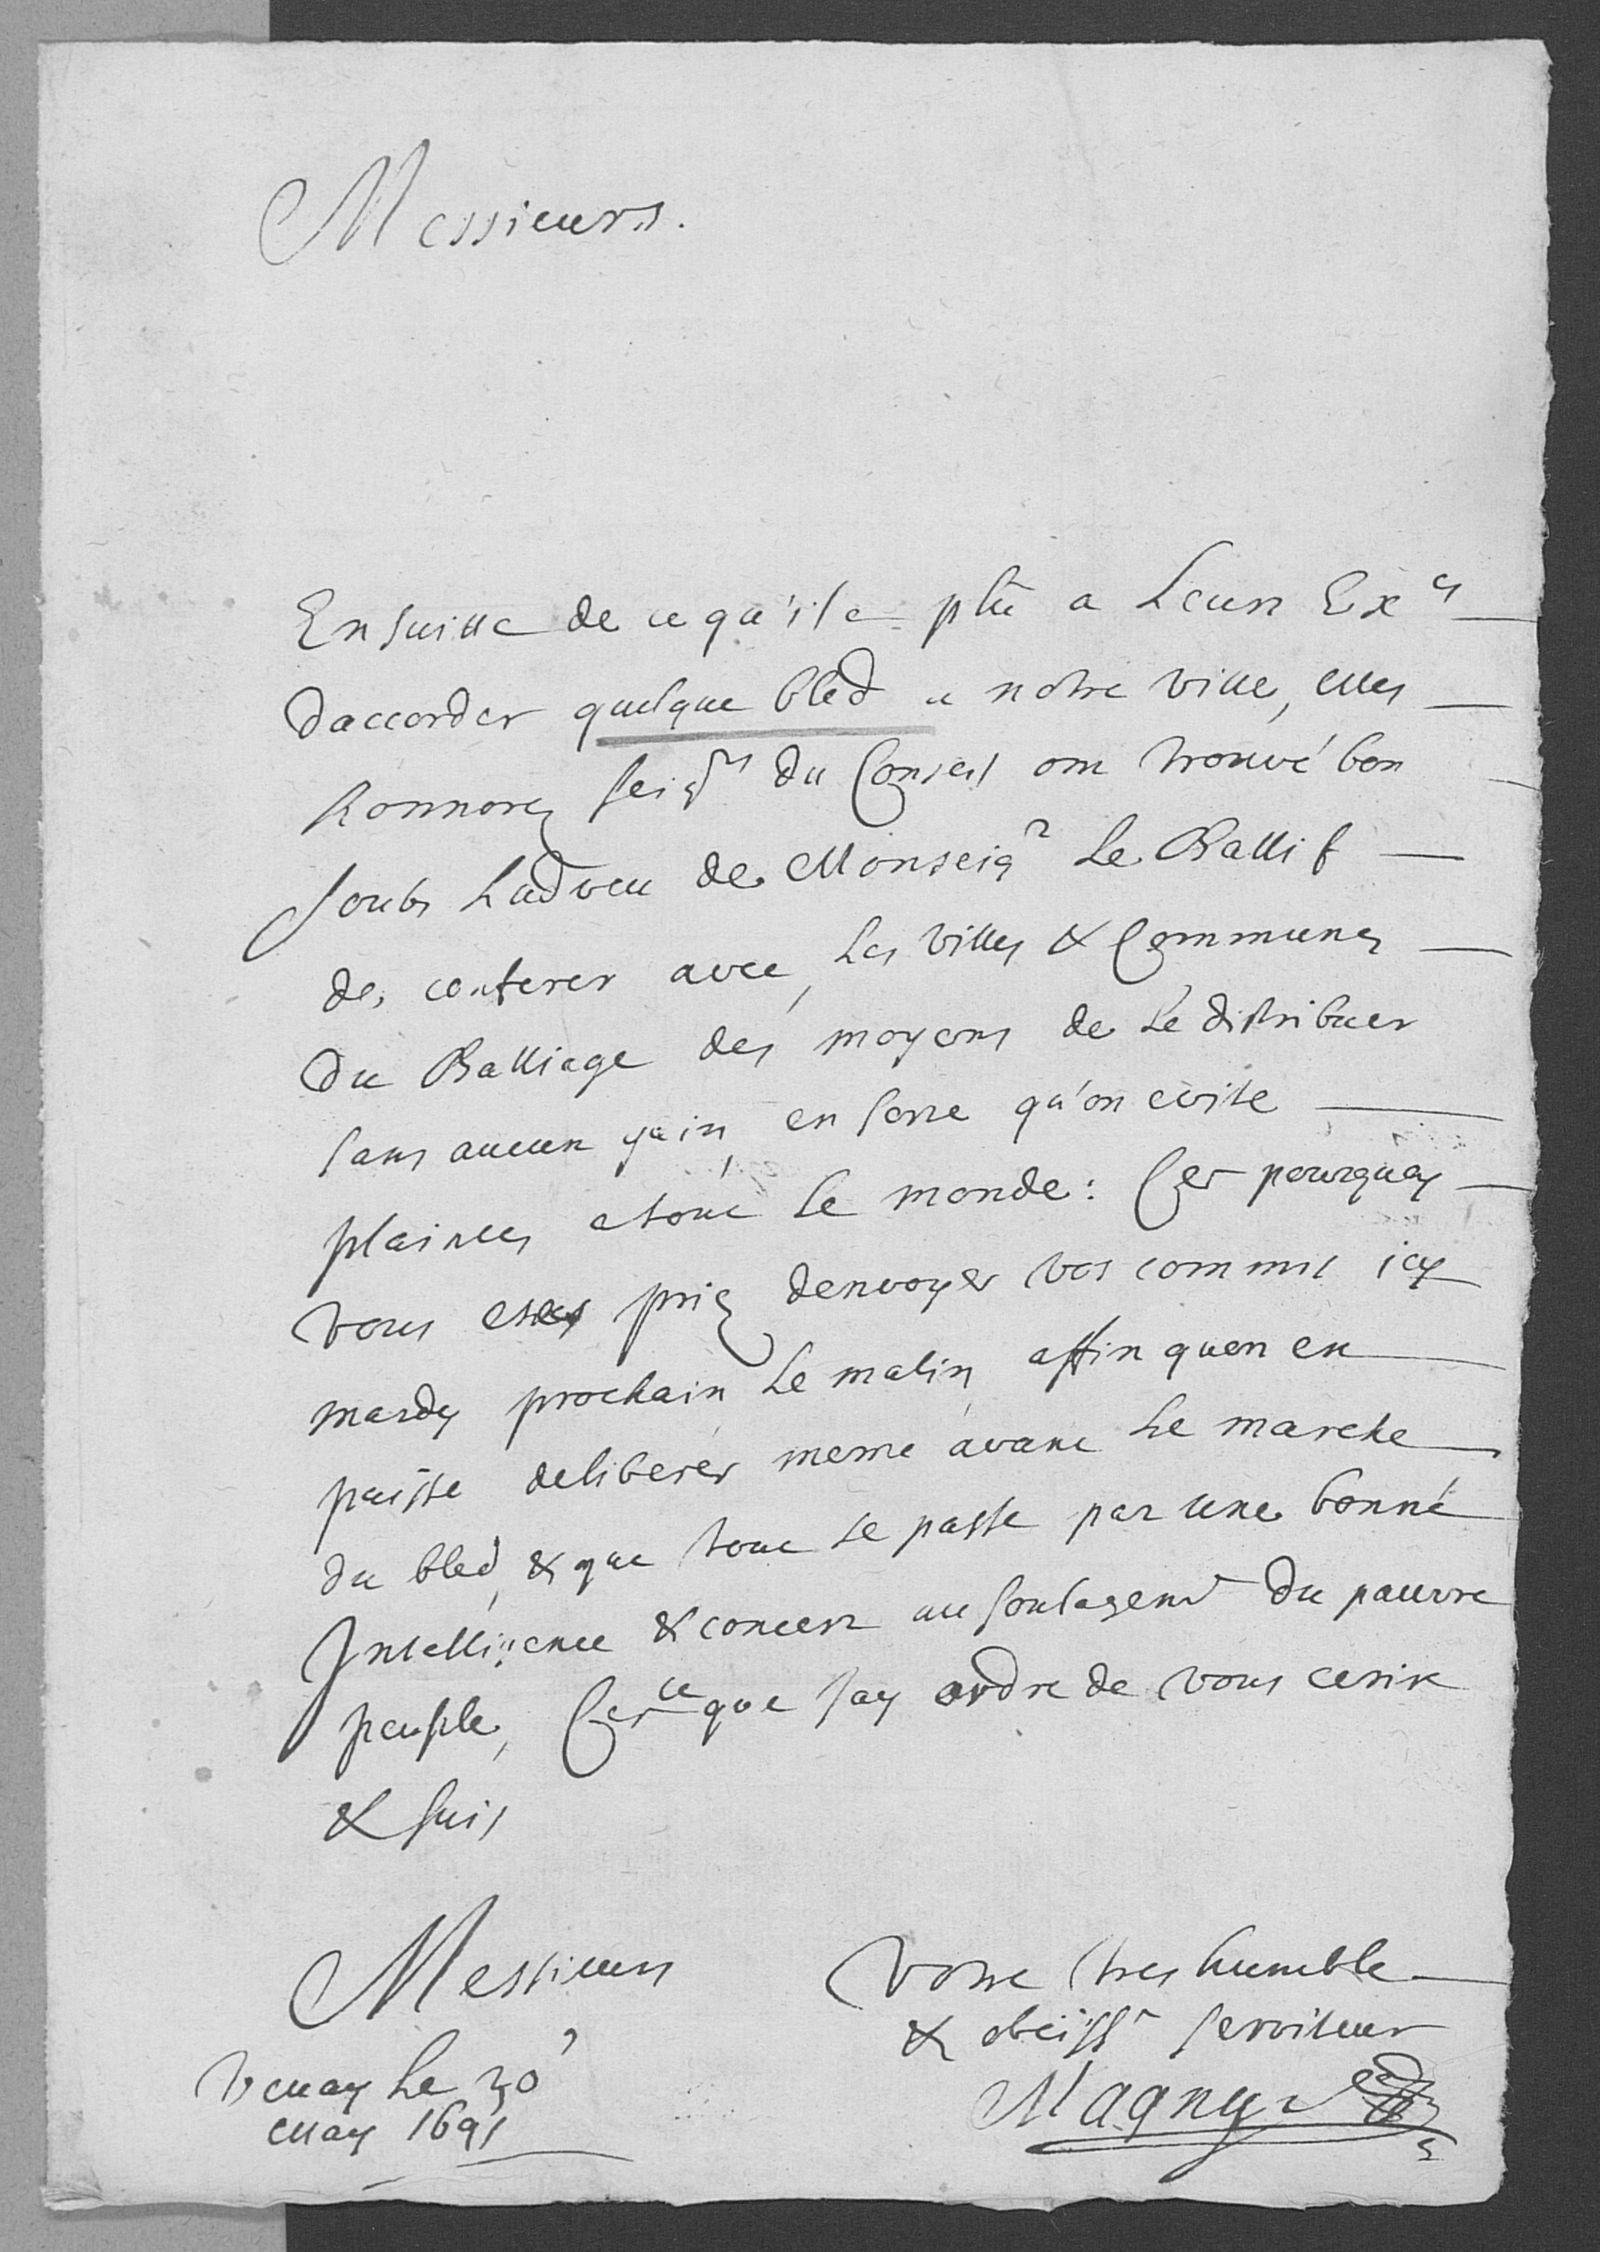 Messieurs.
Ensuitte de ce qu'il a plû a Leurs Ex.es
daccorder quelque bled a notre ville, mes
honnorez seig.rs du Conseil ont trouvé bon
soubs Ladveu de Monseig.r Le Ballif
de conferer avec, Les villes & Communes
Du Balliage des moyens de Le distribuer
sans aucun gain, en sorte qu'on evite
plaintes a tout Le monde: Cest pourquoy
vous estes priez denvoyer vos commis icy
mardy prochain Le matin, affin quon en
puisse deliberer meme avant Le marche
du bled, & que tout se passe par une bonne
Intelligence & concert au soulagem.t Du pauvre
peuple, Cest ce que Jay ordre de vous ecrire
& suis
Messieurs
Votre tres humble
& obeiss.t serviteur
Vevay Le 30
May 1691
Magny